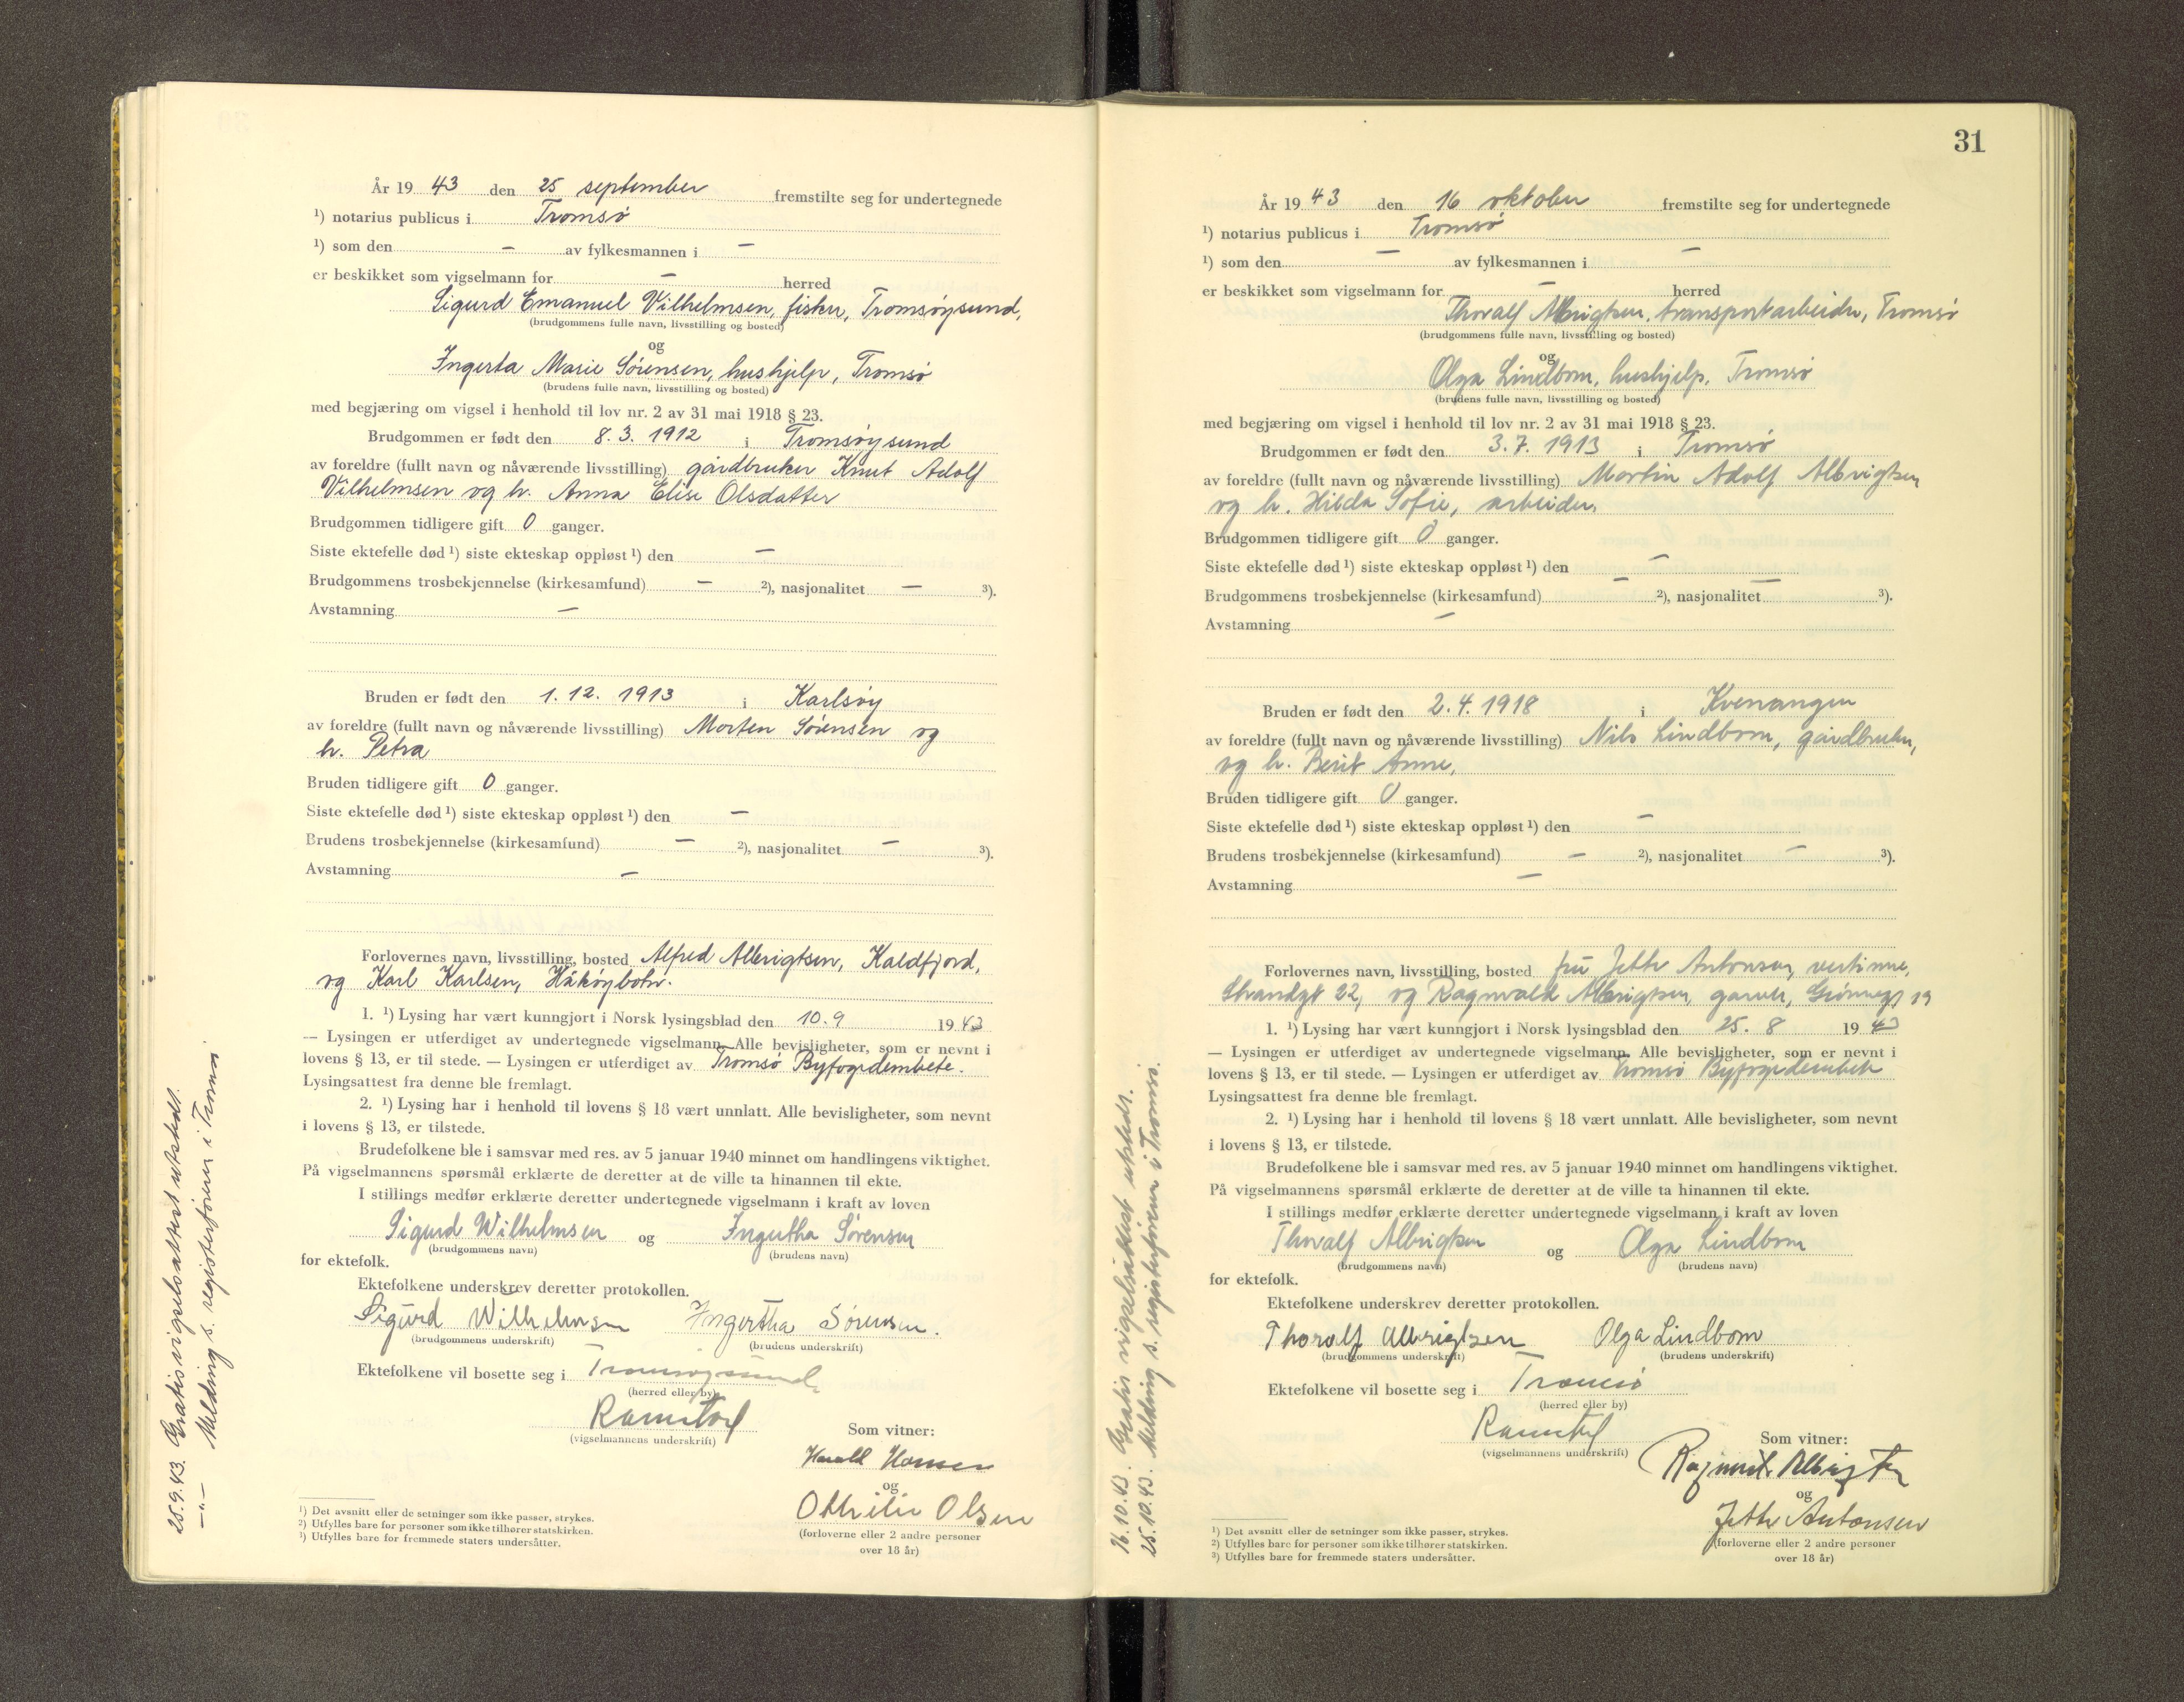 År 19 43 den 25 september fremstilte seg for undertegnede
¹) notarius publicus i Tromsø
¹) som den — av fylkesmannen i —
er beskikket som vigselmann for — herred
Sigurd Emanuel Vilhelmsen, fisker, Tromsøysund,
(brudgommens fulle navn, livsstilling og bosted)
og
Ingerta Marie Sørensen, hushjelp, Tromsø
(brudens fulle navn, livsstilling og bosted)
med begjæring om vigsel i henhold til lov nr. 2 av 31 mai 1918 § 23.
Brudgommen er født den 8. 3. 1912 i Tromsøysund
av foreldre (fullt navn og nåværende livsstilling) gårdbruker Knut Adolf
Vilhelmsen og h. Anna Elise Olsdatter
Brudgommen tidligere gift 0 ganger.
Siste ektefelle død ¹) siste ekteskap oppløst ¹) den —
Brudgommens trosbekjennelse (kirkesamfund) — ²), nasjonalitet — ³).
Avstamning —
Bruden er født den 1. 12. 1913 i Karlsøy
av foreldre (fullt navn og nåværende livsstilling) Morten Sørensen og
h. Petra
Bruden tidligere gift 0 ganger.
Siste ektefelle død ¹) siste ekteskap oppløst ¹) den —
Brudens trosbekjennelse (kirkesamfund) — ²), nasjonalitet — ³).
Avstamning —
Forlovernes navn, livsstilling, bosted Alfred Albrigtsen, Kaldfjord,
og Karl Karlsen, Håkøybotn.
1. ¹) Lysing har vært kunngjort i Norsk lysingsblad den 10. 9 19 43
— Lysingen er utferdiget av undertegnede vigselmann. Alle bevisligheter, som er nevnt i
lovens § 13, er til stede. — Lysingen er utferdiget av Tromsø Byfogdembete.
Lysingsattest fra denne ble fremlagt.
2. ¹) Lysing har i henhold til lovens § 18 vært unnlatt. Alle bevisligheter, som nevnt
i lovens § 13, er tilstede.
Brudefolkene ble i samsvar med res. av 5 januar 1940 minnet om handlingens viktighet.
På vigselmannens spørsmål erklærte de deretter at de ville ta hinannen til ekte.
I stillings medfør erklærte deretter undertegnede vigselmann i kraft av loven
Sigurd Wilhelmsen og Ingertha Sørensen
(brudgommens navn) (brudens navn)
for ektefolk.
Ektefolkene underskrev deretter protokollen.
Sigurd Wilhelmsen Ingertha Sørensen.
(brudgommens underskrift) (brudens underskrift)
Ektefolkene vil bosette seg i Tromsøysund
(herred eller by)
(vigselmannens underskrift)
Som vitner:
Harald Hansen
og
Othilie Olsen
(forloverne eller 2 andre personer
over 18 år)
¹) Det avsnitt eller de setninger som ikke passer, strykes.
²) Utfylles bare for personer som ikke tilhører statskirken.
³) Utfylles bare for fremmede staters undersåtter.
25.9.43. Gratis vigselsattest utstedt.
—"— Melding s. registerføreren i Tromsø
31
År 19 43 den 16 oktober fremstilte seg for undertegnede
¹) notarius publicus i Tromsø
¹) som den — av fylkesmannen i —
er beskikket som vigselmann for — herred
Thoralf Albrigtsen, transportarbeider, Tromsø
(brudgommens fulle navn, livsstilling og bosted)
og
Olga Lindbom, hushjelp, Tromsø
(brudens fulle navn, livsstilling og bosted)
med begjæring om vigsel i henhold til lov nr. 2 av 31 mai 1918 § 23.
Brudgommen er født den 3. 7. 1913 i Tromsø
av foreldre (fullt navn og nåværende livsstilling) Martin Adolf Albrigtsen
og h. Hilda Sofie, arbeider.
Brudgommen tidligere gift 0 ganger.
Siste ektefelle død ¹) siste ekteskap oppløst ¹) den —
Brudgommens trosbekjennelse (kirkesamfund) — ²), nasjonalitet — ³).
Avstamning —
Bruden er født den 2. 4. 1918 i Kvenangen
av foreldre (fullt navn og nåværende livsstilling) Nils Lindbom, gårdbruker,
og h. Berit Anne,
Bruden tidligere gift 0 ganger.
Siste ektefelle død ¹) siste ekteskap oppløst ¹) den —
Brudens trosbekjennelse (kirkesamfund) — ²), nasjonalitet — ³).
Avstamning —
Forlovernes navn, livsstilling, bosted fru Antonsen, vertinne,
Strandgt 22, og Ragnvald Albrigtsen, garver, Grønnegt 19
1. ¹) Lysing har vært kunngjort i Norsk lysingsblad den 25. 8 19 43
— Lysingen er utferdiget av undertegnede vigselmann. Alle bevisligheter, som er nevnt i
lovens § 13, er til stede. — Lysingen er utferdiget av Tromsø Byfogdembete
Lysingsattest fra denne ble fremlagt.
2. ¹) Lysing har i henhold til lovens § 18 vært unnlatt. Alle bevisligheter, som nevnt
i lovens § 13, er tilstede.
Brudefolkene ble i samsvar med res. av 5 januar 1940 minnet om handlingens viktighet.
På vigselmannens spørsmål erklærte de deretter at de ville ta hinannen til ekte.
I stillings medfør erklærte deretter undertegnede vigselmann i kraft av loven
Thoralf Albrigtsen og Olga Lindbom
(brudgommens navn) (brudens navn)
for ektefolk.
Ektefolkene underskrev deretter protokollen.
Thoralf Albrigtsen Olga Lindbom
(brudgommens underskrift) (brudens underskrift)
Ektefolkene vil bosette seg i Tromsø
(herred eller by)
(vigselmannens underskrift)
Som vitner:
Albrigtsen
og
Antonsen
(forloverne eller 2 andre personer
over 18 år)
¹) Det avsnitt eller de setninger som ikke passer, strykes.
²) Utfylles bare for personer som ikke tilhører statskirken.
³) Utfylles bare for fremmede staters undersåtter.
16.10.43. Gratis vigselsattest utstedt.
25.10.43. Melding s. registerføreren i Tromsø.